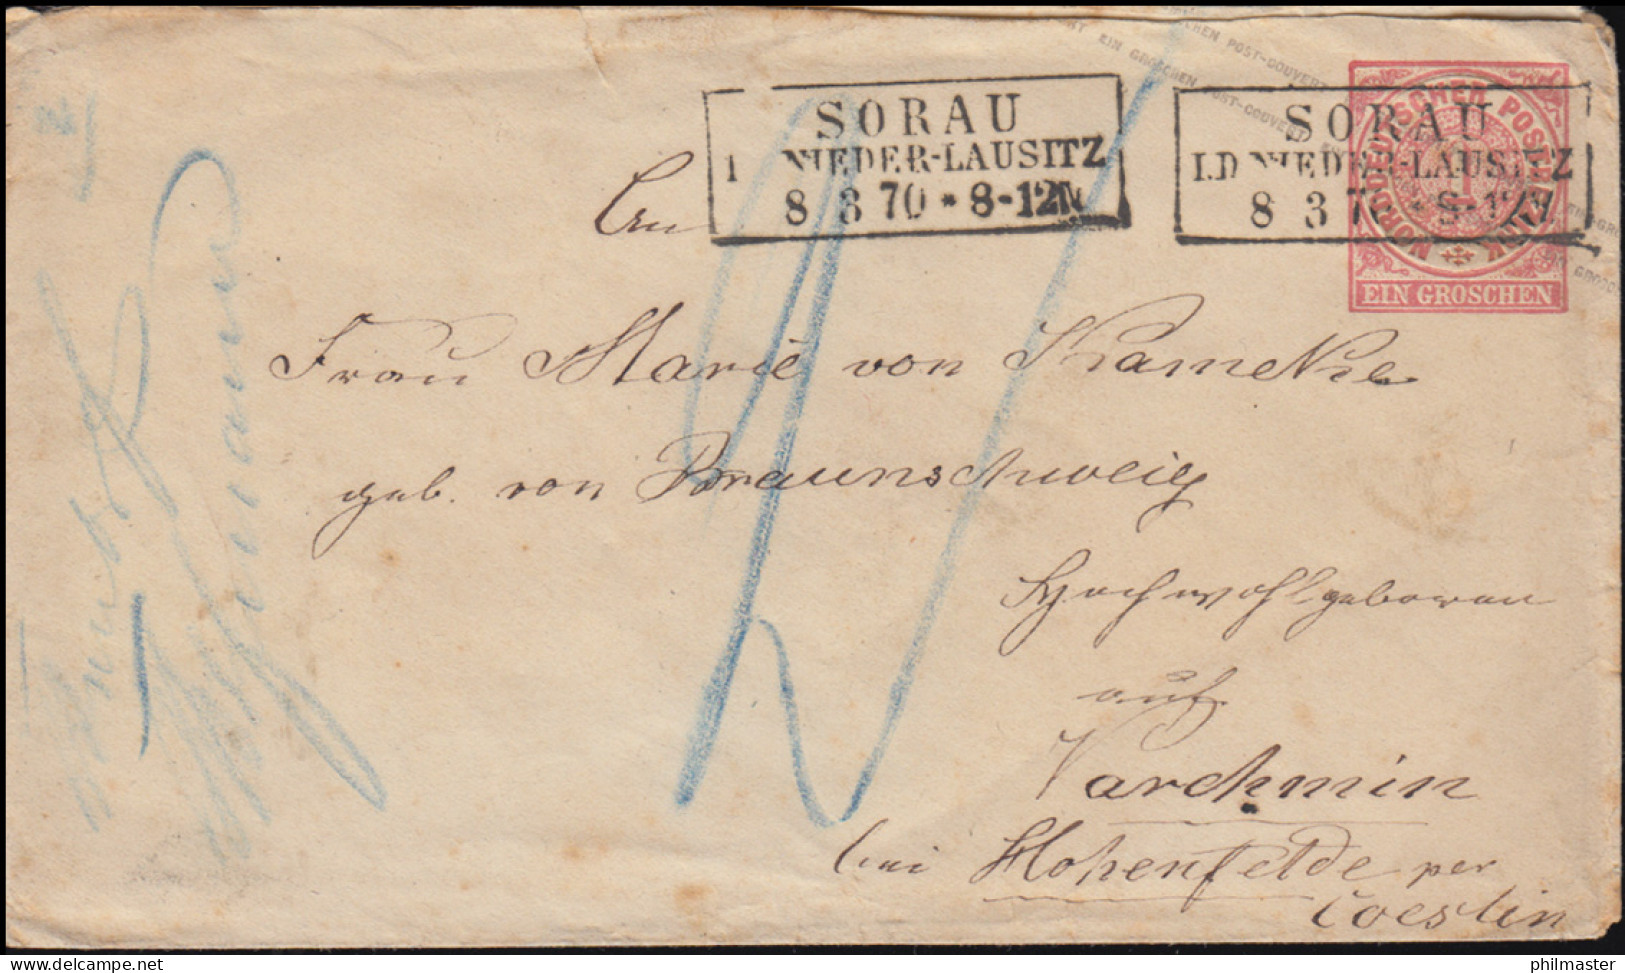 EIN GROSCHEN POST-COUVERT
SORAU
NIEDER-LAUSITZ
8 3 70 * 8-12M
SORAU
I.D NIEDER-LAUSITZ
8 3 7 * 8-12
NORDDEUTSCHER POSTBEZIRK
1
EIN GROSCHEN
An
Frau Marie von Kameke
geb. von Braunschweig
Hochwohlgeboren
auf
Varchmin
bei Hohenfelde per
Coeslin
philmaster